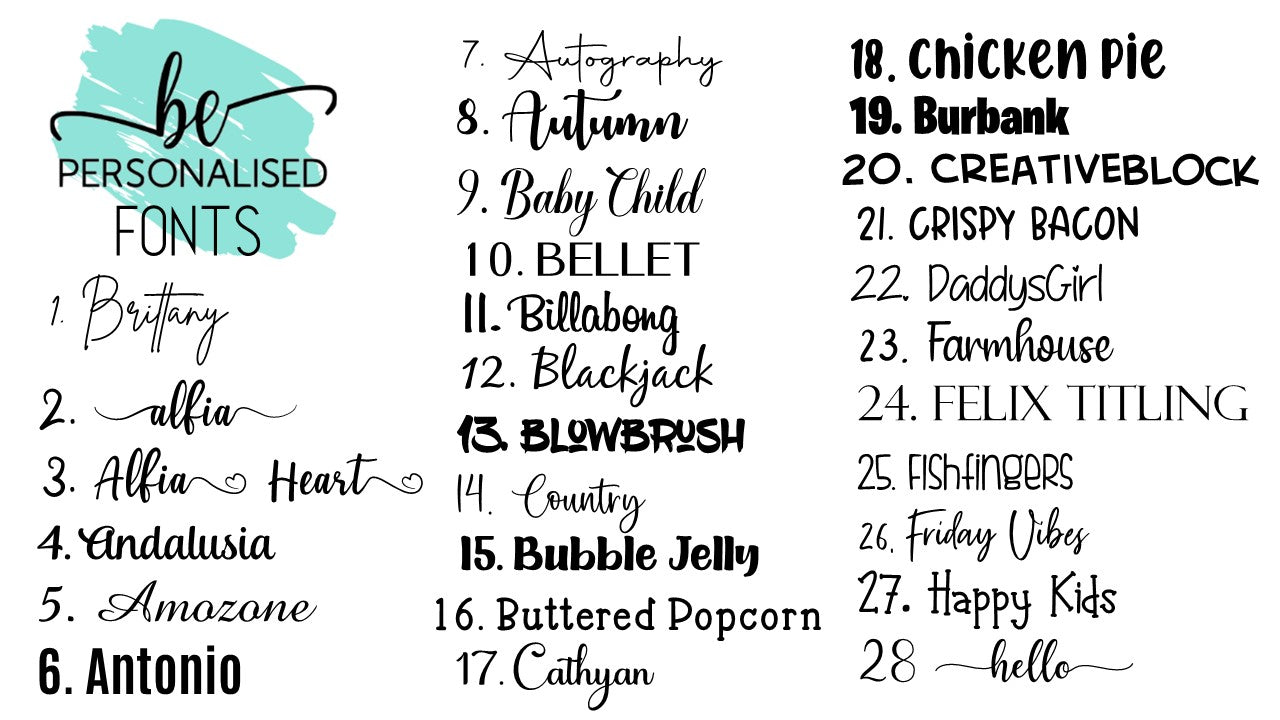 be
PERSONALISED
FONTS
1. Brittany
2. alfia
3. Alfia Heart
4. Andalusia
5. Amozone
6. Antonio
7. Autography
8. Autumn
9. Baby Child
10. BELLET
11. Billabong
12. Blackjack
13. BLOWBRUSH
14. Country
15. Bubble Jelly
16. Buttered Popcorn
17. Cathyan
18. Chicken Pie
19. Burbank
20. CREATIVEBLOCK
21. CRISPY BACON
22. DaddysGirl
23. Farmhouse
24. FELIX TITLING
25. FIShfINGERS
26. Friday Vibes
27. Happy Kids
28 hello